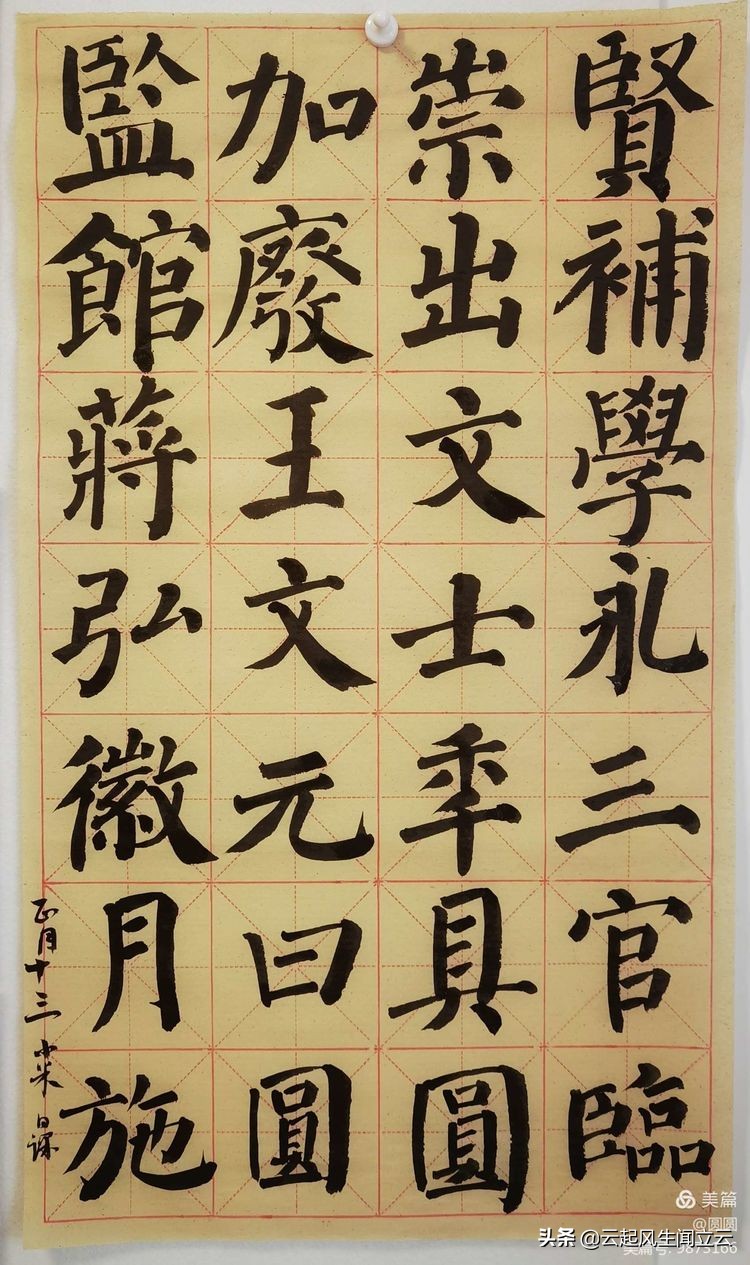 賢補學永三官臨
崇出文士秊具圓
加廢王文元曰圓
監館蔣弘徽月施
正月十三 日课
美篇
@圆圆
头条 @云起风生闻立云
美篇号: 9873166